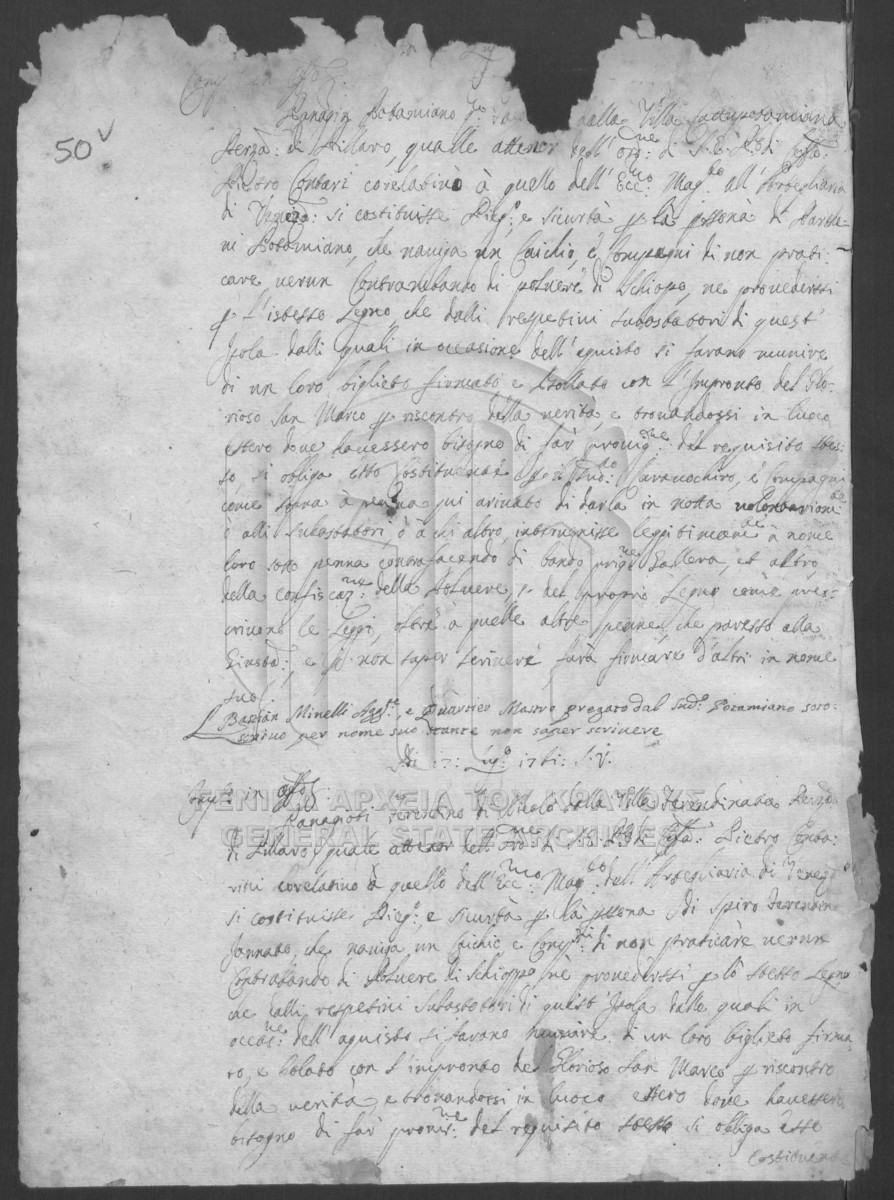 50v
Comp: in Off:
Panagin Potamiano q: dalla Villa
Perza: di Pillaro, qualle attenor dell' Ordne: di S. E. Pr:
Pietro Contari corelativo à quello dell' Eccmo Mag:to all' Arteglieria
di Venezia: si costituisse Pieg:o e sicurtà p la persona di
Potamiano, che naviga un Caichio, e Compagni di non prati:
care verun Contrabando di polvere di Schiopo, ne provedersi
p l'istesso Legno, che dalli respetivi subastatori di quest'
Isola dalli quali in occasione dell' aquisto si farano munire
di un loro biglieto firmato e bollato con l'Impronto del Glo:
rioso San Marco p riscontro della verità, e trovandossi in luoco
estero dove havessero bisogno di far provigne: del requisito stes:
so, si obliga esso Costituente che il sudto Caravochiro, e Compagni
come sopra à pena qui arivato di darla in notta volontariamte
ò alli subastatori, ò à chi altro, intervenisse leggitimamte à nome
loro sotto penna contrafacendo di bando prigne Gallera, et altro,
della confiscazne: della Polvere, e del proprio Legno come pres:
crivono le Leggi, oltre à quelle altre penne, che paresse alla
Giustia:, e p non saper scrivere farà firmare d'altri in nome
suo
Bastian Minelli Aggte, e Quartier Mastro pregato dal Sudo Potamiano soto:
scrivo per nome suo stante non saper scrivere
Adi 17: Lugo 1761: S.V.
Comp: in Offo:
Panagioti Ferendino di Nicolò della Villa Ferendinata Perza
di Pillaro, quale attenor dell' Ordne di S. E. Pr: Pietro Conta:
rini corelativo à quello dell' Eccmo Mag:to dell' Arteglieria di Veneza
si costituisse Pieg:o, e sicurtà p la persona di Spiro Ferendino
Jannato, che naviga un Caichio e Compni: di non praticare verun
Contrabando di Polvere di Schioppo, nè provedersi p lo stesso Legno
che dalli respetivi Subastatori di quest' Isola dalli quali in
occasne: dell' aquisto si farano munire di un loro biglieto firma
to, e bolato con l'impronto del Glorioso San Marco p riscontro
della verità, e trovandossi in luoco estero dove havessero
bisogno di far provigne: del requisito stesso si obliga esso
Costituente
ΓΕΝΙΚΑ ΑΡΧΕΙΑ ΤΟΥ ΚΡΑΤΟΥΣ
GENERAL STATE ARCHIVES